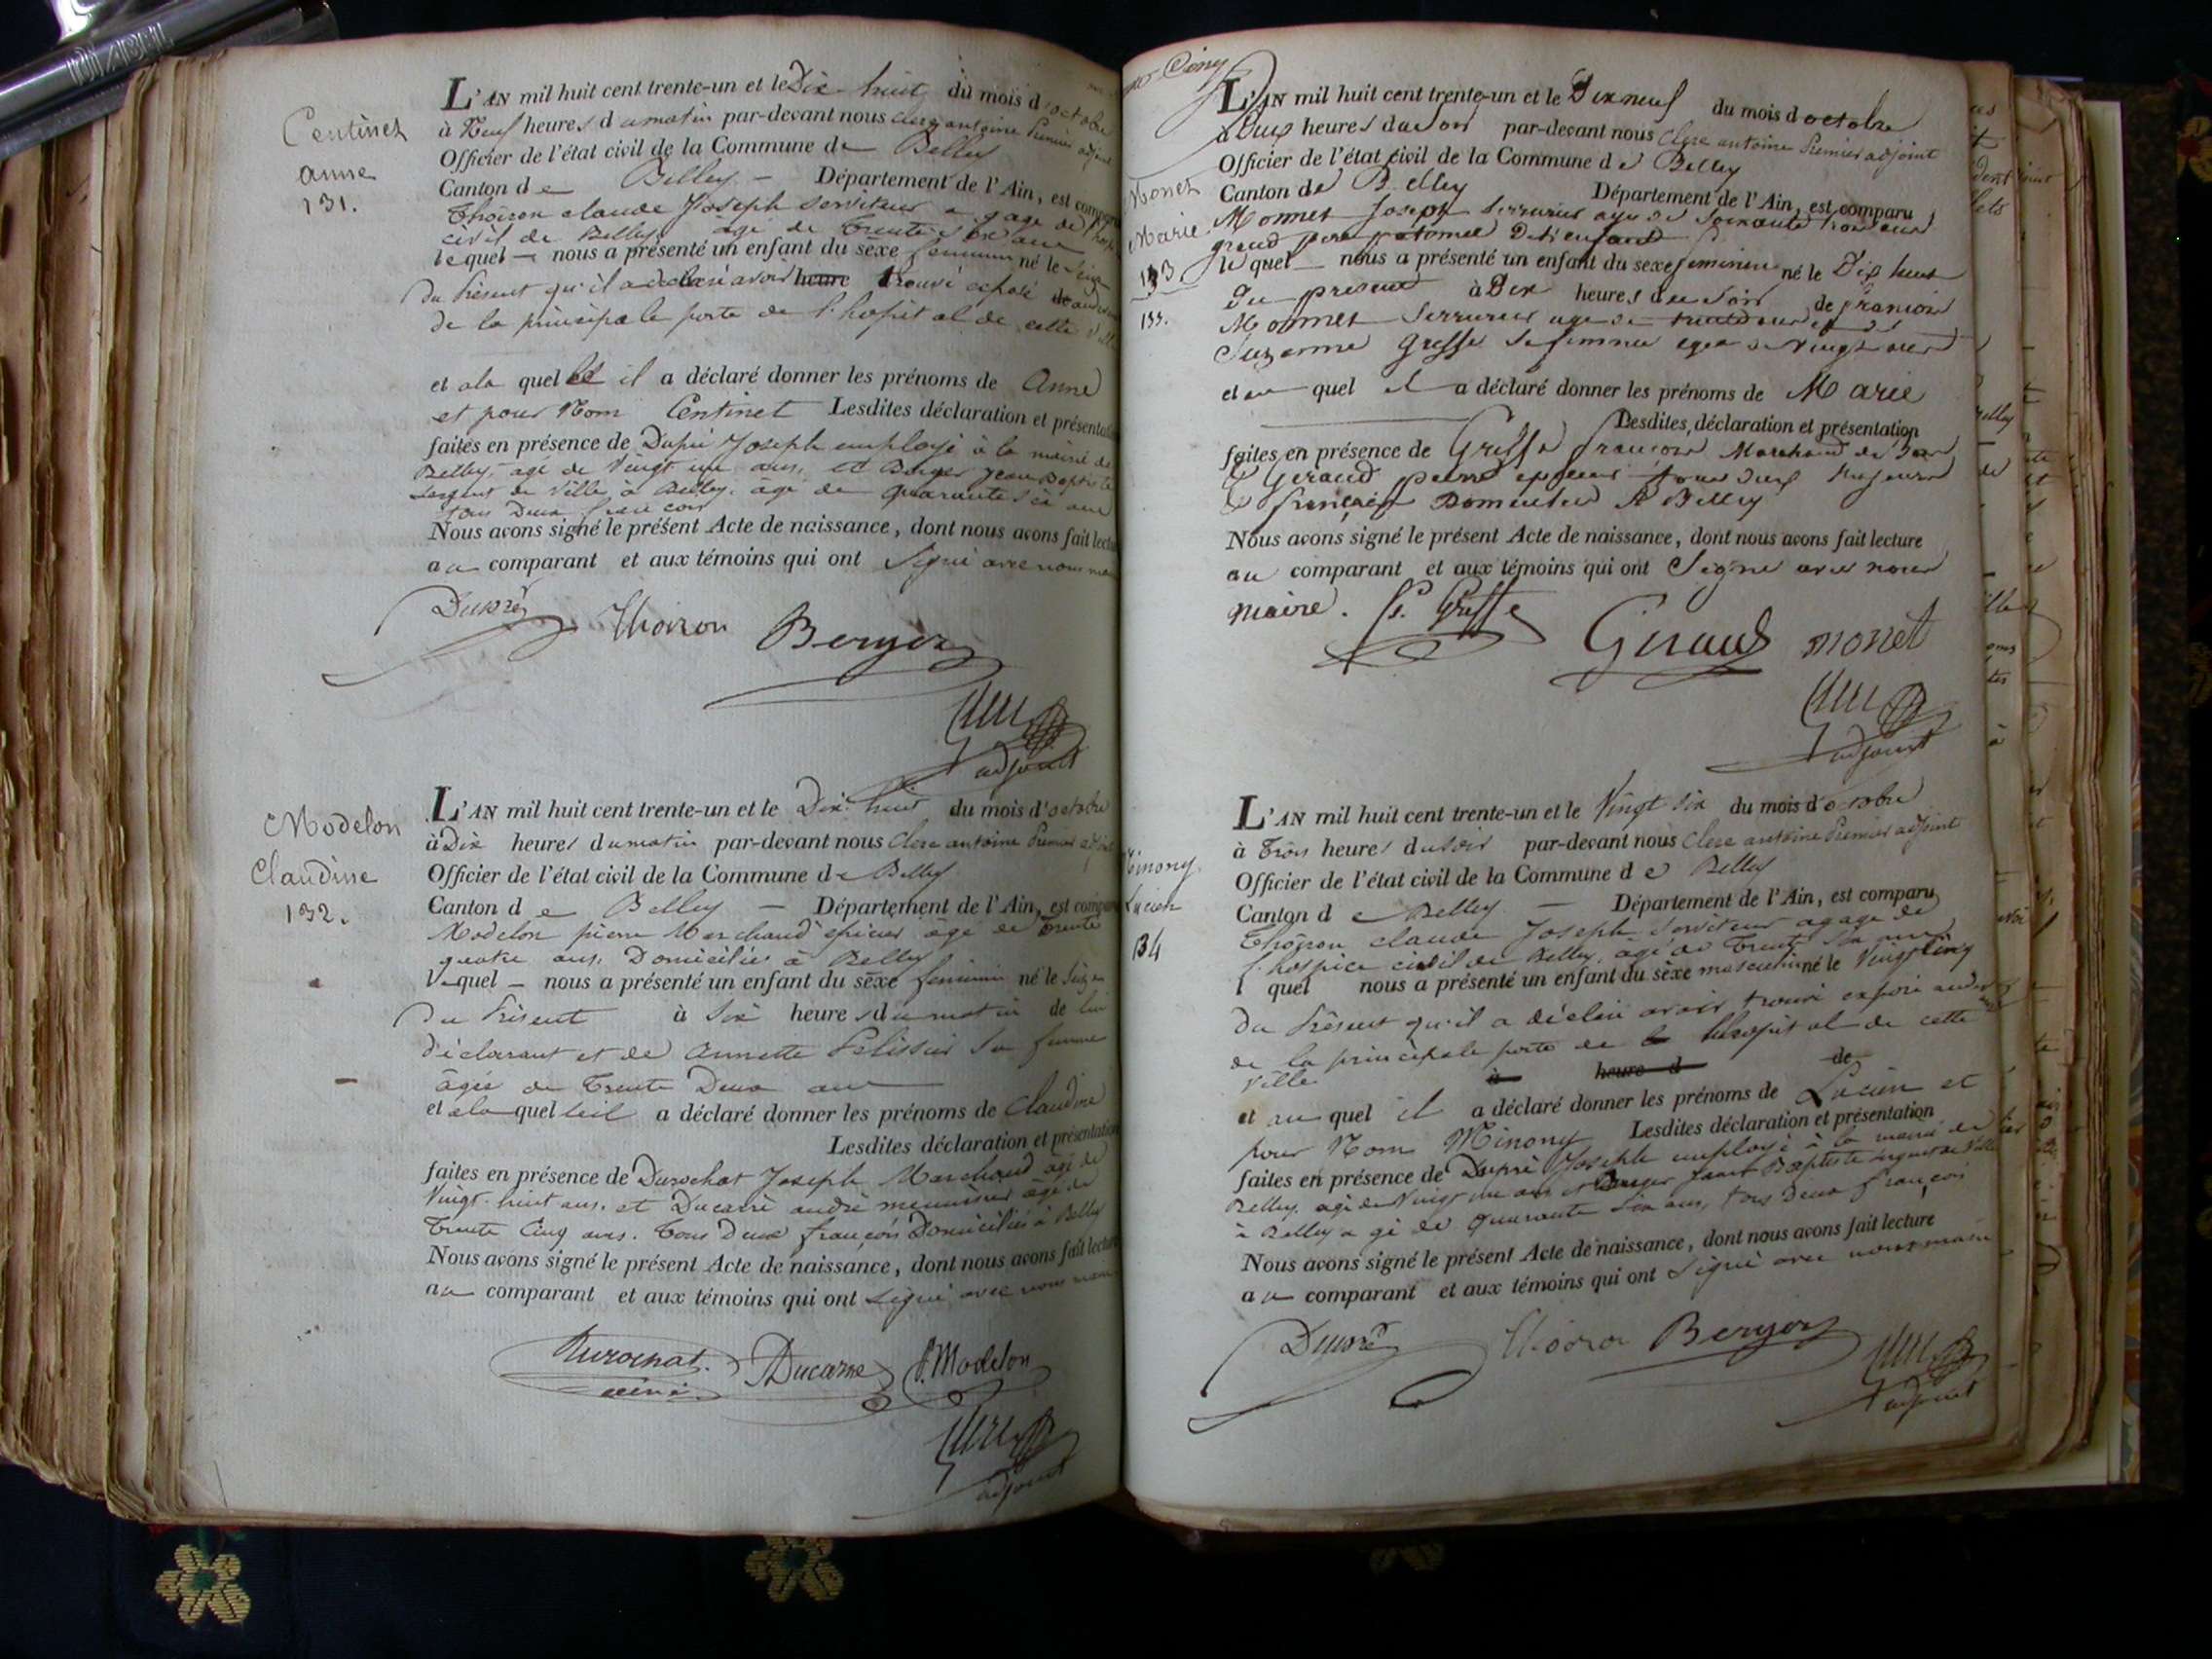 Centinet
anne
131.
L'AN mil huit cent trente-un et le Dix huit du mois d'octobre
à Neuf heures du matin par-devant nous Clerc antoine Premier adjoint
Officier de l'état civil de la Commune de Belley
Canton de Belley - Département de l'Ain, est comparu
Thoison claude Joseph serviteur a gage de
civil de Belley âgé de Trente six ans
lequel nous a présenté un enfant du sexe feminin né le Seize
Du Présent qu'il a déclaré avoir heure trouvé exposé
de la principale porte de l'hopital de cette
et a la quelle il a déclaré donner les prénoms de Anne
et pour Nom Centinet Lesdites déclaration et présentation
faites en présence de Dupré Joseph employé à la mairie de
Belley, agé de Vingt un ans, et Berger Jean Baptiste
Sergent de Ville à Belley, âgé de quarante six ans
tous Deux françois
Nous avons signé le présent Acte de naissance, dont nous avons fait lecture
au comparant et aux témoins qui ont Signé avec nous
Dupré Thoison Berger
adjoint
Modelon
Claudine
132.
L'AN mil huit cent trente-un et le Dix huit du mois d'octobre
à Dix heures du matin par-devant nous Clerc antoine Premier
Officier de l'état civil de la Commune de Belley
Canton de Belley - Département de l'Ain, est comparu
Modelon pierre Marchand épicier âgé de Trente
quatre ans, Domicilié à Belley
lequel - nous a présenté un enfant du sexe feminin né le Seize
Du Présent à Six heures du matin de lui
déclarant et de Annette Pelissier Sa femme
âgée de Trente Deux ans
et a la quelle il a déclaré donner les prénoms de Claudine
Lesdites déclaration et présentation
faites en présence de Durochat Joseph Marchand âgé de
Vingt-huit ans, et Ducarre andré menuisier âgé de
Trente Cinq ans. Tous Deux françois Domiciliés à Belley
Nous avons signé le présent Acte de naissance, dont nous avons fait lecture
au comparant et aux témoins qui ont Signé avec nous
Durochat Ducarre P. Modelon
ainé
adjoint
Monet
Marie
133
133.
L'AN mil huit cent trente-un et le Dix neuf du mois d'octobre
heures du Soir par-devant nous Clerc antoine Premier adjoint
Officier de l'état civil de la Commune de Belley
Canton de Belley Département de l'Ain, est comparu
Monnet Joseph Serrurier agé de Soixante
grand pere paternel
le quel nous a présenté un enfant du sexe feminin né le Dix huit
Du present à Dix heures du Soir de francois
Monnet Serrurier agé de et de
Suzanne Griffe Sa femme agée de Vingt
et au quel il a déclaré donner les prénoms de Marie
Lesdites déclaration et présentation
faites en présence de Griffe françois Marchand de
Geraud pierre tous deux Majeurs
français Domiciliés A Belley
Nous avons signé le présent Acte de naissance, dont nous avons fait lecture
au comparant et aux témoins qui ont Signé avec nous
maire. Griffe Giraud monet
adjoint
Lucien
134
L'AN mil huit cent trente-un et le Vingt Six du mois d'octobre
à Trois heures du Soir par-devant nous Clerc antoine Premier adjoint
Officier de l'état civil de la Commune de Belley
Canton de Belley - Département de l'Ain, est comparu
Thoison claude Joseph Serviteur a gage de
l'hospice civil de Belley, âgé de Trente Six ans
l quel nous a présenté un enfant du sexe masculin né le Vingt Cinq
Du Présent qu'il a déclaré avoir trouvé exposé
de la principale porte de l'hopital de cette
Ville à heure d de
et au quel il a déclaré donner les prénoms de Lucien et
pour Nom Minony Lesdites déclaration et présentation
faites en présence de Dupré Joseph employé à la mairie de
Belley, agé de Vingt un ans et Berger Jean Baptiste sergent de Ville
à Belley agé de Quarante Six ans, tous Deux françois
Nous avons signé le présent Acte de naissance, dont nous avons fait lecture
au comparant et aux témoins qui ont Signé avec nous maire
Dupré Berger
adjoint